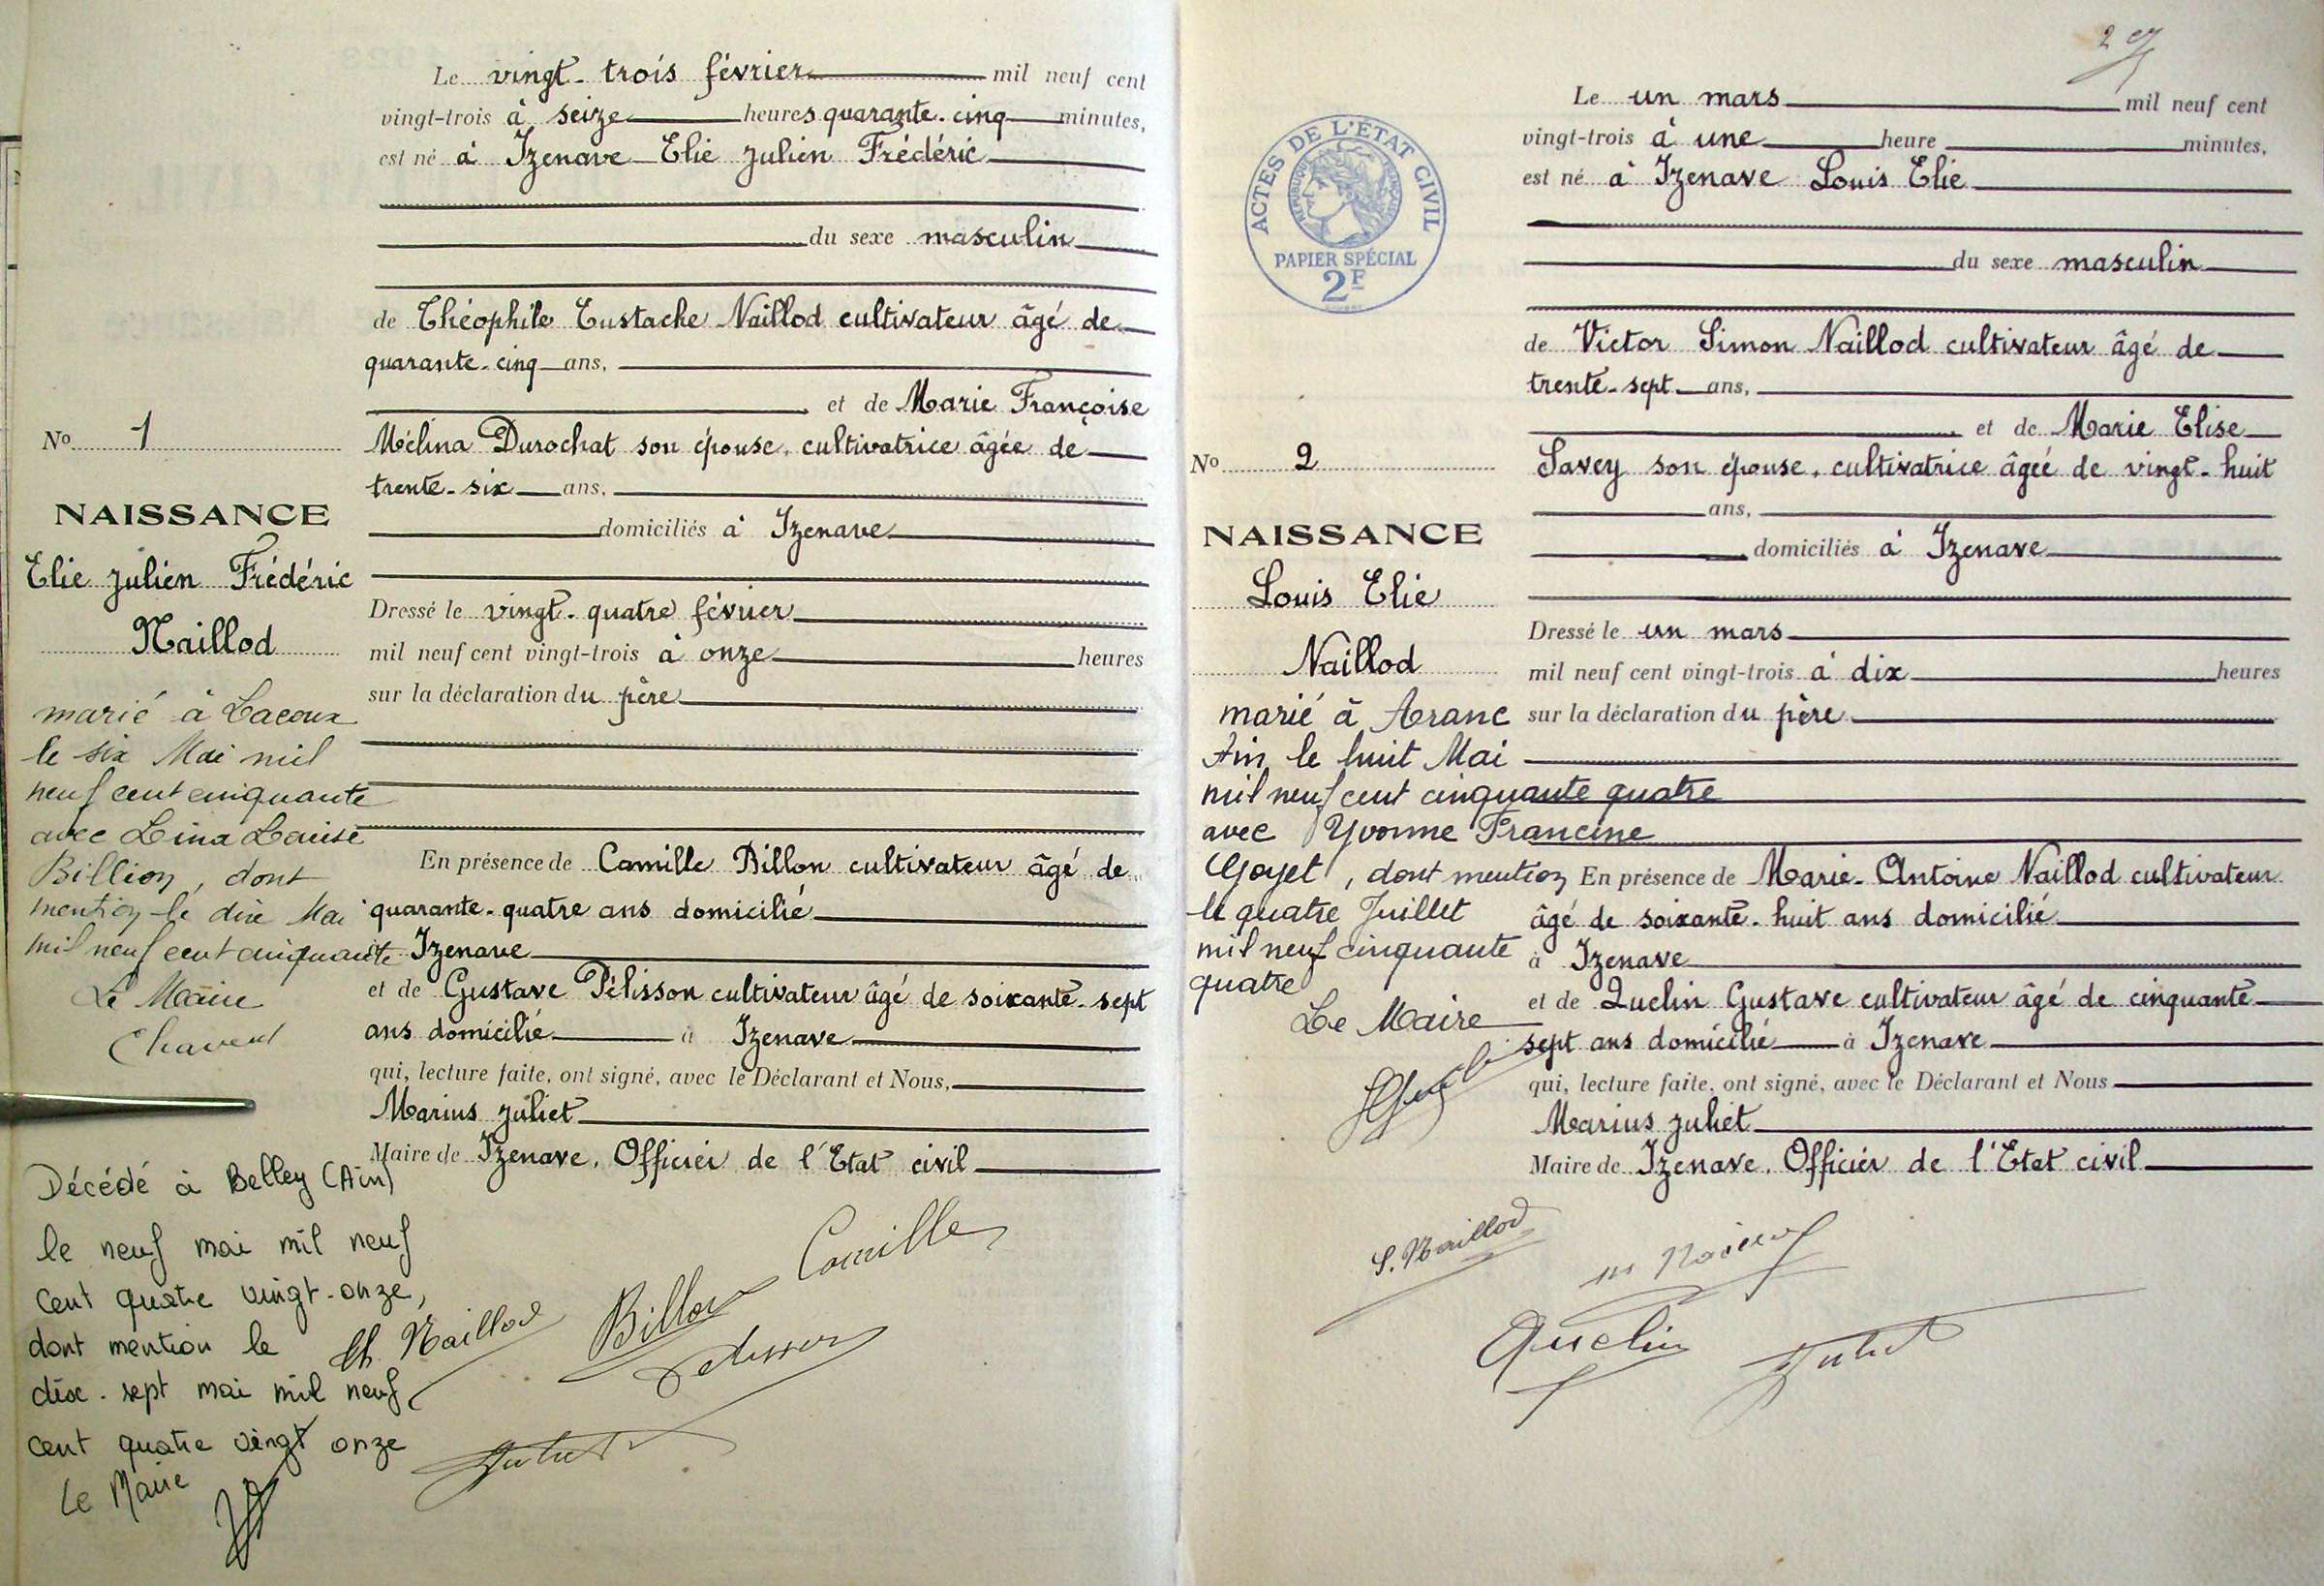 Le vingt-trois février mil neuf cent
vingt-trois à seize heures quarante-cinq minutes,
est né à Izenave Elie Julien Frédéric
du sexe masculin
de Théophile Eustache Naillod cultivateur âgé de
quarante-cinq ans,
et de Marie Françoise
Mélina Durochat son épouse, cultivatrice âgée de
trente-six ans,
domiciliés à Izenave
Dressé le vingt-quatre février
mil neuf cent vingt-trois à onze heures
sur la déclaration du père
En présence de Camille Billon cultivateur âgé de
quarante-quatre ans domicilié
à Izenave
et de Gustave Pélisson cultivateur âgé de soixante-sept
ans domicilié à Izenave
qui, lecture faite, ont signé, avec le Déclarant et Nous,
Marius Juliet
Maire de Izenave, Officier de l'Etat civil
No 1
NAISSANCE
Elie Julien Frédéric
Naillod
marié à Lacoux
le six Mai mil
neuf cent cinquante
avec Lina Louise
Billion, dont
mention le dix Mai
mil neuf cent cinquante
Le Maire
Décédé à Belley (Ain)
le neuf mai mil neuf
cent quatre vingt-onze,
dont mention le
dix-sept mai mil neuf
cent quatre vingt onze
Le Maire
Th. Naillod
Billon Camille
Pelisson
Juliet
2
Le un mars mil neuf cent
vingt-trois à une heure minutes,
est né à Izenave Louis Elie
du sexe masculin
de Victor Simon Naillod cultivateur âgé de
trente-sept ans,
et de Marie Elise
Savey son épouse, cultivatrice âgée de vingt-huit
ans,
domiciliés à Izenave
Dressé le un mars
mil neuf cent vingt-trois à dix heures
sur la déclaration du père
En présence de Marie-Antoine Naillod cultivateur
âgé de soixante-huit ans domicilié
à Izenave
et de Quelin Gustave cultivateur âgé de cinquante
sept ans domicilié à Izenave
qui, lecture faite, ont signé, avec le Déclarant et Nous
Marius Juliet
Maire de Izenave, Officier de l'Etat civil
ACTES DE L'ÉTAT CIVIL
RÉPUBLIQUE FRANÇAISE
PAPIER SPÉCIAL
2F
No 2
NAISSANCE
Louis Elie
Naillod
marié à Aranc
Ain le huit Mai
mil neuf cent cinquante quatre
avec Yvonne Francine
Goyet, dont mention
le quatre Juillet
mil neuf cinquante
quatre
Le Maire
S. Naillod
m Naillod
Quelin
Juliet